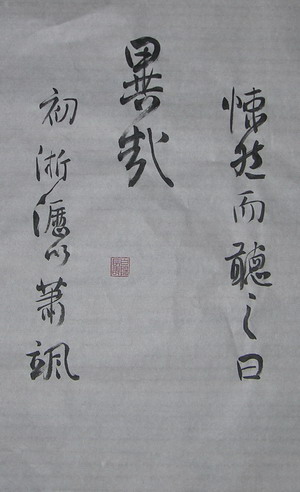 悚然而聽之曰
異哉
初淅瀝以蕭颯